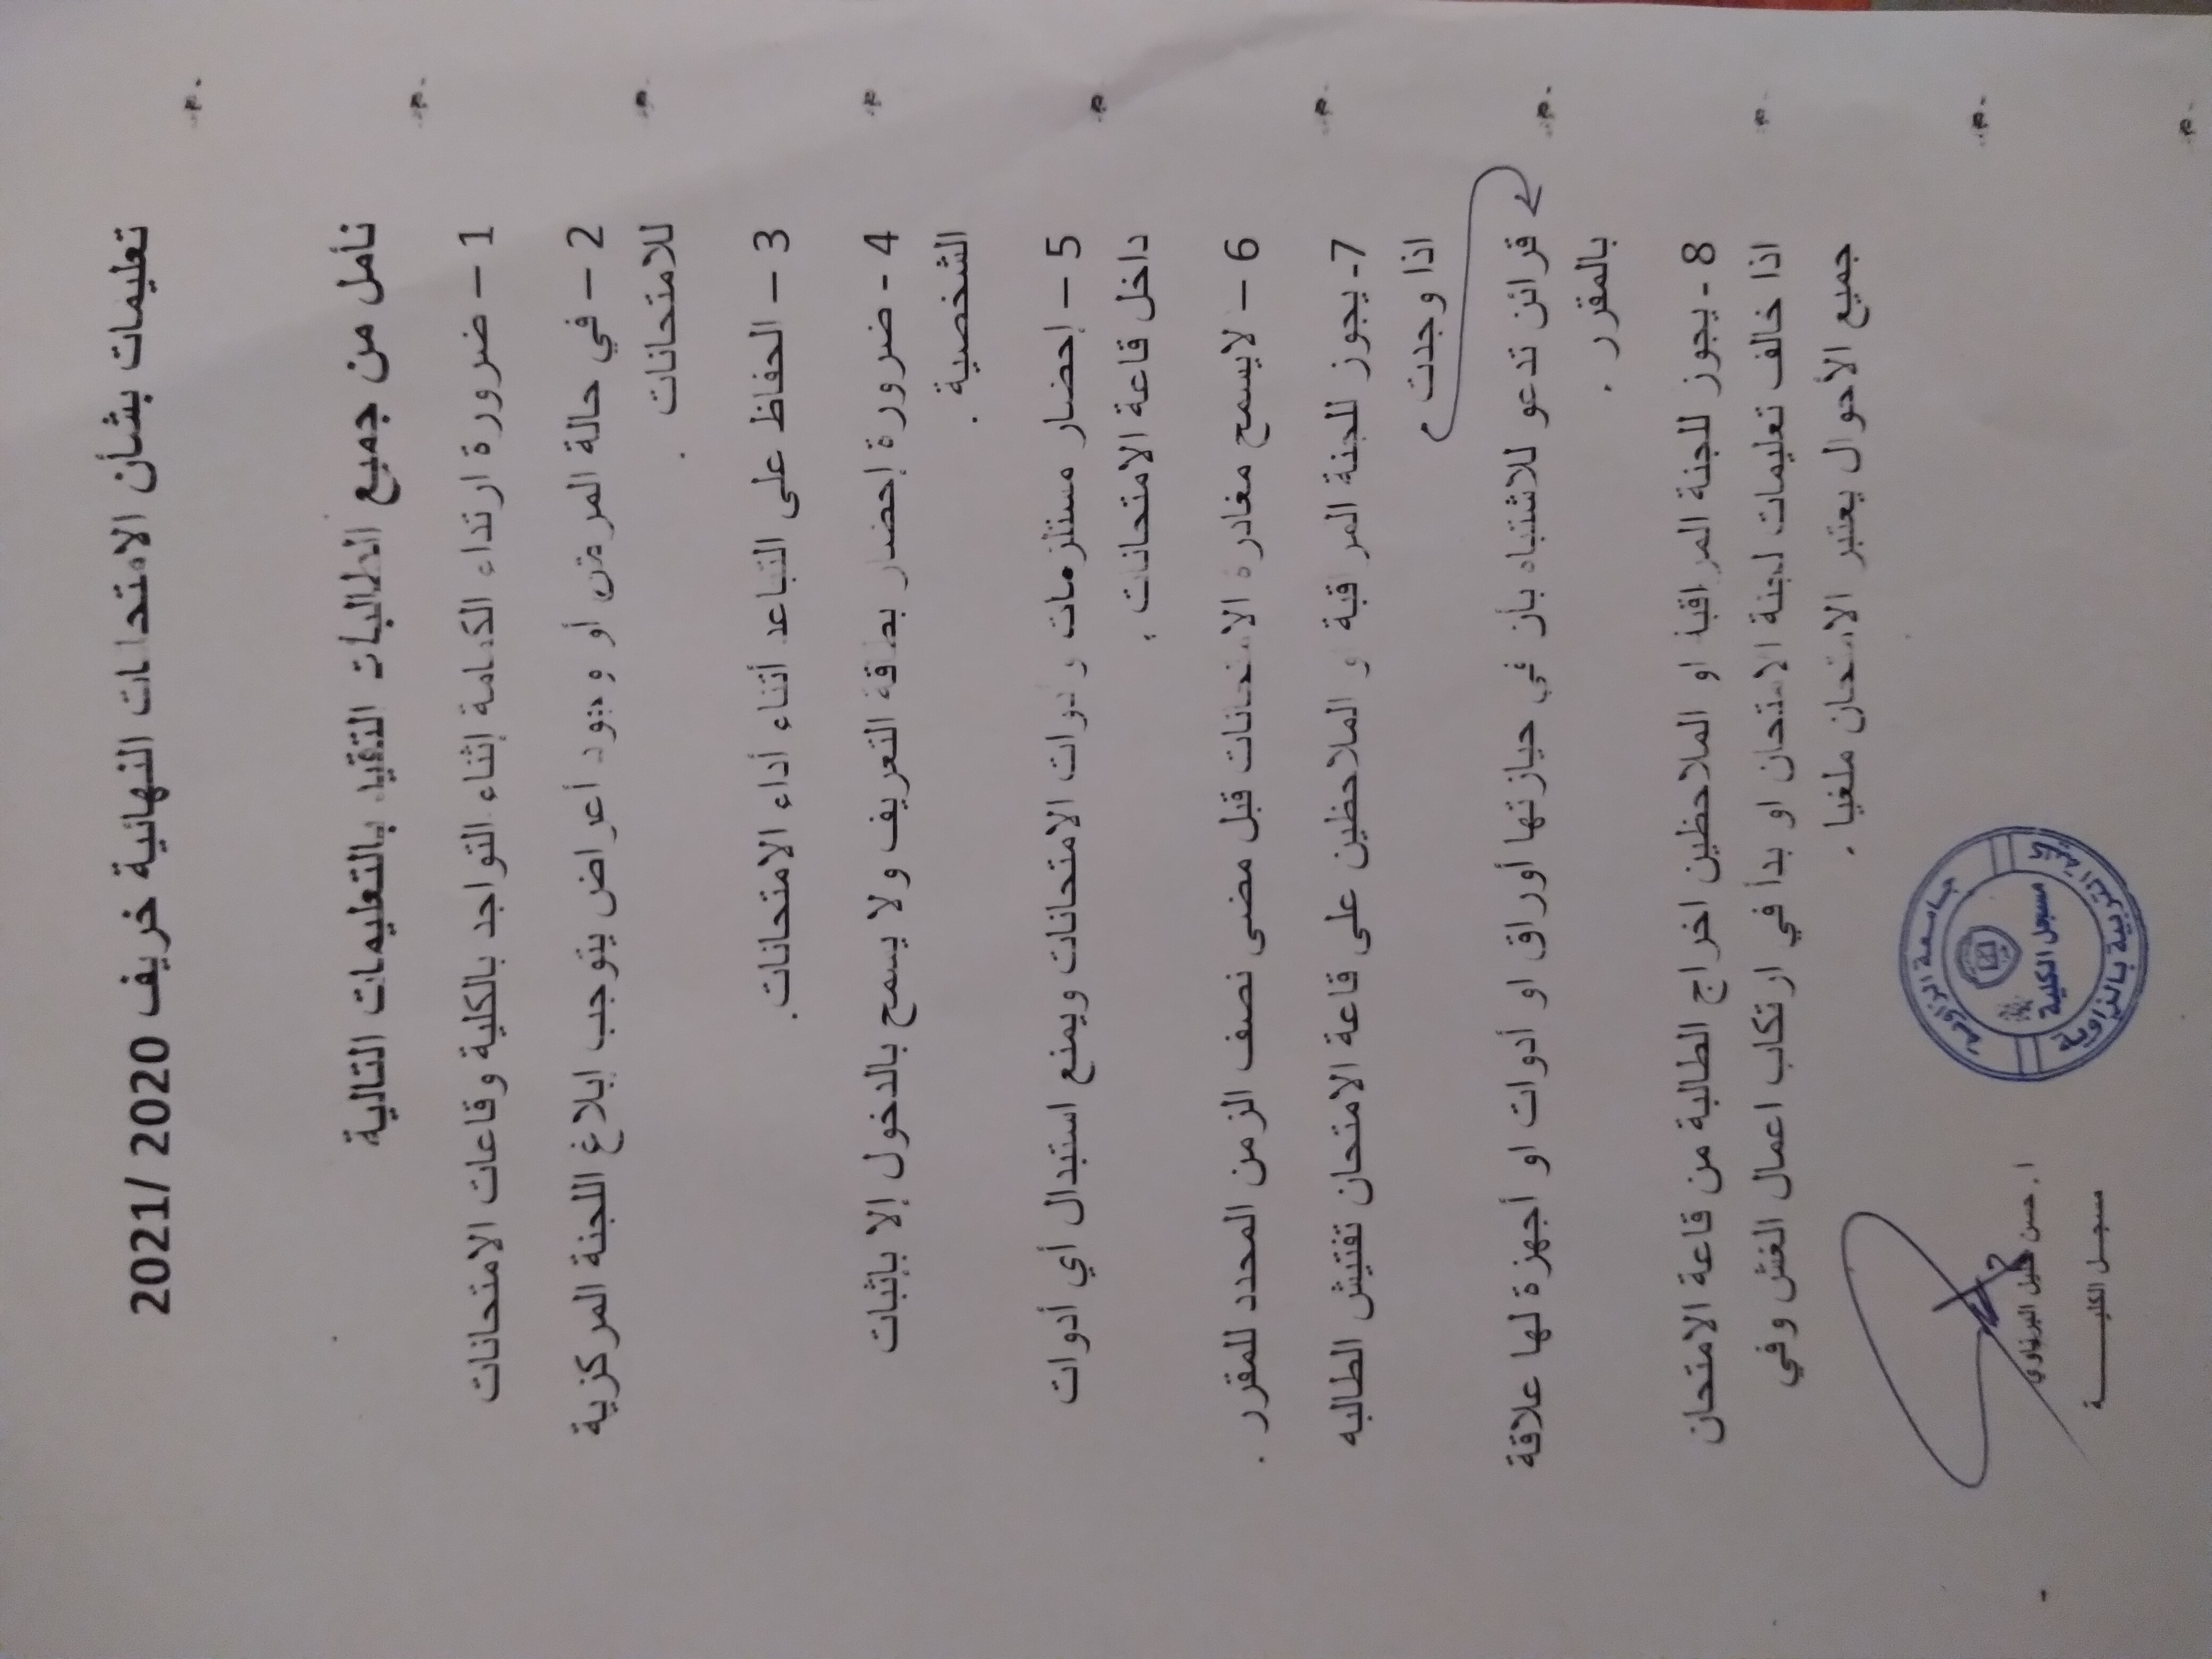 تعليمات بشأن الامتحانات النهائية خريف 2020 /2021
نأمل من جميع الطالبات التقيد بالتعليمات التالية
1 – ضرورة ارتداء الكمامة إثناء التواجد بالكلية وقاعات الامتحانات
2 – في حالة المرض أو وجود أعراض يتوجب إبلاغ اللجنة المركزية
للامتحانات .
3 – الحفاظ على التباعد أثناء أداء الامتحانات.
4 - ضرورة إحضار بطاقة التعريف ولا يسمح بالدخول إلا بإثبات
الشخصية .
5 – إحضار مستلزمات و أدوات الامتحانات ويمنع استبدال أي أدوات
داخل قاعة الامتحانات .
6 – لايسمح مغادرة الامتحانات قبل مضى نصف الزمن المحدد للمقرر .
7- يجوز للجنة المراقبة و الملاحظين على قاعة الامتحان تفتيش الطالبه
اذا وجدت
قرائن تدعو للاشتباه بأن في حيازتها أوراق او أدوات او أجهزة لها علاقة
بالمقرر .
8 - يجوز للجنة المراقبة او الملاحظين اخراج الطالبة من قاعة الامتحان
اذا خالف تعليمات لجنة الامتحان او بدأ في ارتكاب اعمال الغش وفي
جميع الأحوال يعتبر الامتحان ملغيا .
جامعة الزاوية
مسجل الكلية
كلية التربية بالزاوية
ا. حسن خليل
مسجل الكليـــــــة